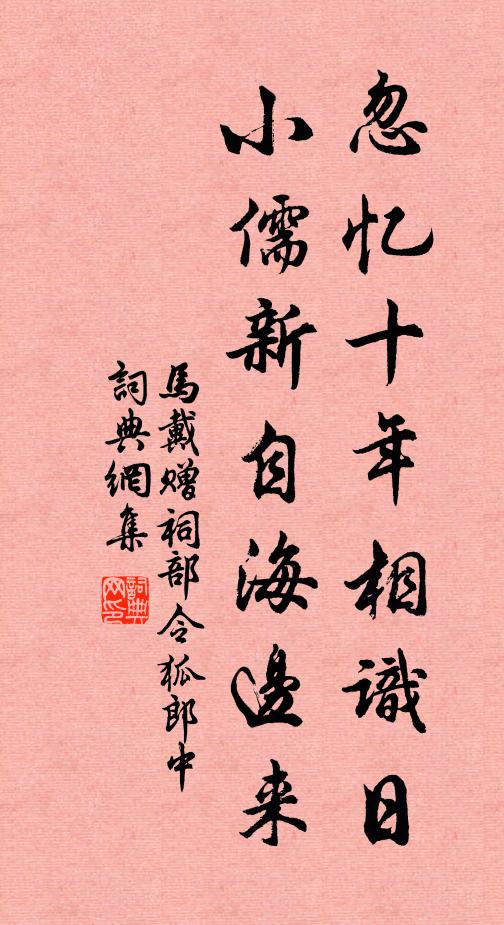 忽忆十年相識日
小儒新自海邊来
馬戴赠祠部令狐郎中
詞典網集
詞典网印